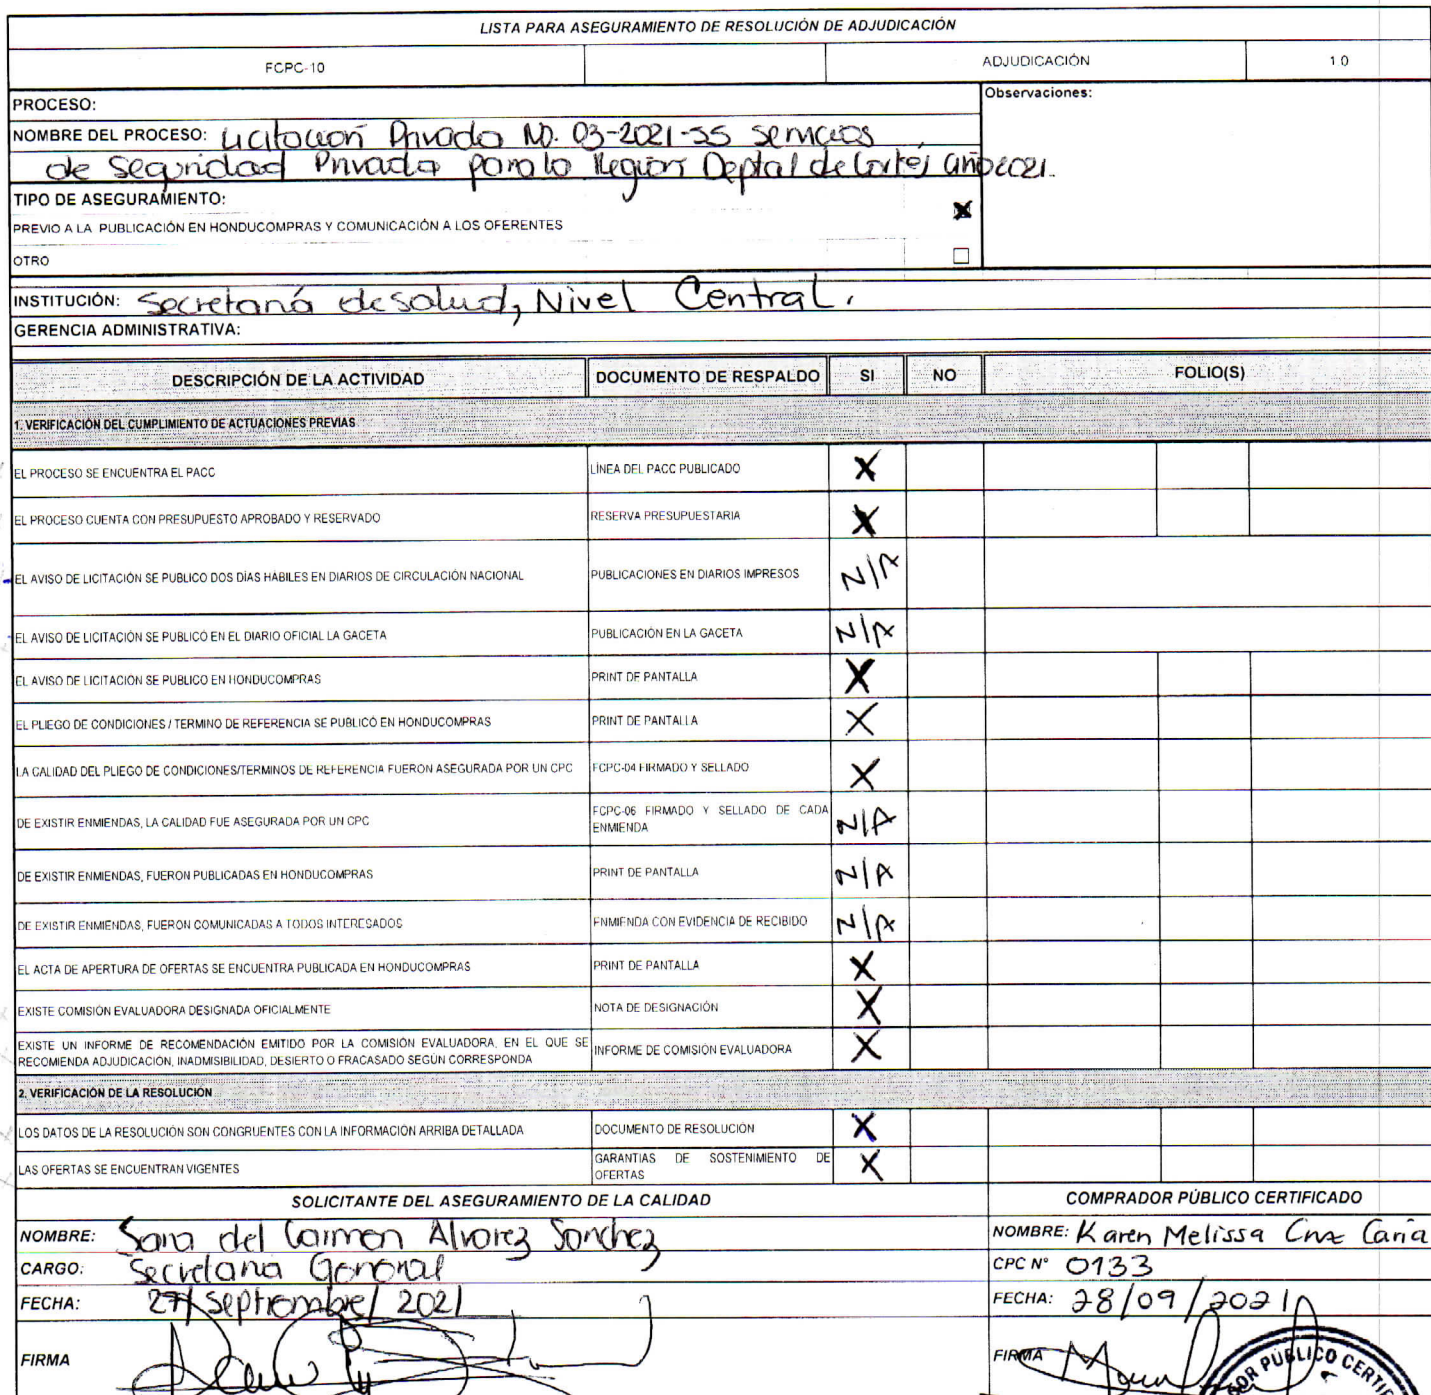 LISTA PARA ASEGURAMIENTO DE RESOLUCIÓN DE ADJUDICACIÓN
FCPC-10 ADJUDICACIÓN 1.0
PROCESO: Observaciones:
NOMBRE DEL PROCESO: Licitación Privada No. 03-2021-SS Servicios
de Seguridad Privada para la Region Deptal de Cortés año 2021.
TIPO DE ASEGURAMIENTO:
PREVIO A LA PUBLICACIÓN EN HONDUCOMPRAS Y COMUNICACIÓN A LOS OFERENTES X
OTRO
INSTITUCIÓN: Secretaría de Salud, Nivel Central.
GERENCIA ADMINISTRATIVA:
DESCRIPCIÓN DE LA ACTIVIDAD DOCUMENTO DE RESPALDO SI NO FOLIO(S)
1. VERIFICACIÓN DEL CUMPLIMIENTO DE ACTUACIONES PREVIAS
EL PROCESO SE ENCUENTRA EL PACC LÍNEA DEL PACC PUBLICADO X
EL PROCESO CUENTA CON PRESUPUESTO APROBADO Y RESERVADO RESERVA PRESUPUESTARIA X
EL AVISO DE LICITACIÓN SE PUBLICO DOS DÍAS HABILES EN DIARIOS DE CIRCULACIÓN NACIONAL PUBLICACIONES EN DIARIOS IMPRESOS N/A
EL AVISO DE LICITACIÓN SE PUBLICÓ EN EL DIARIO OFICIAL LA GACETA PUBLICACIÓN EN LA GACETA N/A
EL AVISO DE LICITACIÓN SE PUBLICO EN HONDUCOMPRAS PRINT DE PANTALLA X
EL PLIEGO DE CONDICIONES / TERMINO DE REFERENCIA SE PUBLICÓ EN HONDUCOMPRAS PRINT DE PANTALLA X
LA CALIDAD DEL PLIEGO DE CONDICIONES/TERMINOS DE REFERENCIA FUERON ASEGURADA POR UN CPC FCPC-04 FIRMADO Y SELLADO X
DE EXISTIR ENMIENDAS, LA CALIDAD FUE ASEGURADA POR UN CPC FCPC-06 FIRMADO Y SELLADO DE CADA ENMIENDA N/A
DE EXISTIR ENMIENDAS, FUERON PUBLICADAS EN HONDUCOMPRAS PRINT DE PANTALLA N/A
DE EXISTIR ENMIENDAS, FUERON COMUNICADAS A TODOS INTERESADOS ENMIENDA CON EVIDENCIA DE RECIBIDO N/A
EL ACTA DE APERTURA DE OFERTAS SE ENCUENTRA PUBLICADA EN HONDUCOMPRAS PRINT DE PANTALLA X
EXISTE COMISIÓN EVALUADORA DESIGNADA OFICIALMENTE NOTA DE DESIGNACIÓN X
EXISTE UN INFORME DE RECOMENDACIÓN EMITIDO POR LA COMISIÓN EVALUADORA, EN EL QUE SE
RECOMIENDA ADJUDICACIÓN, INADMISIBILIDAD, DESIERTO O FRACASADO SEGÚN CORRESPONDA INFORME DE COMISIÓN EVALUADORA X
2. VERIFICACIÓN DE LA RESOLUCIÓN
LOS DATOS DE LA RESOLUCION SON CONGRUENTES CON LA INFORMACIÓN ARRIBA DETALLADA DOCUMENTO DE RESOLUCIÓN X
LAS OFERTAS SE ENCUENTRAN VIGENTES GARANTIAS DE SOSTENIMIENTO DE OFERTAS X
SOLICITANTE DEL ASEGURAMIENTO DE LA CALIDAD COMPRADOR PÚBLICO CERTIFICADO
NOMBRE: Sara del Carmen Alvarez Sanchez NOMBRE: Karen Melissa Cruz Caria
CARGO: Secretaria General CPC N° 0133
FECHA: 27/septiembre/2021 FECHA: 28/09/2021
FIRMA FIRMA
PÚBLICO